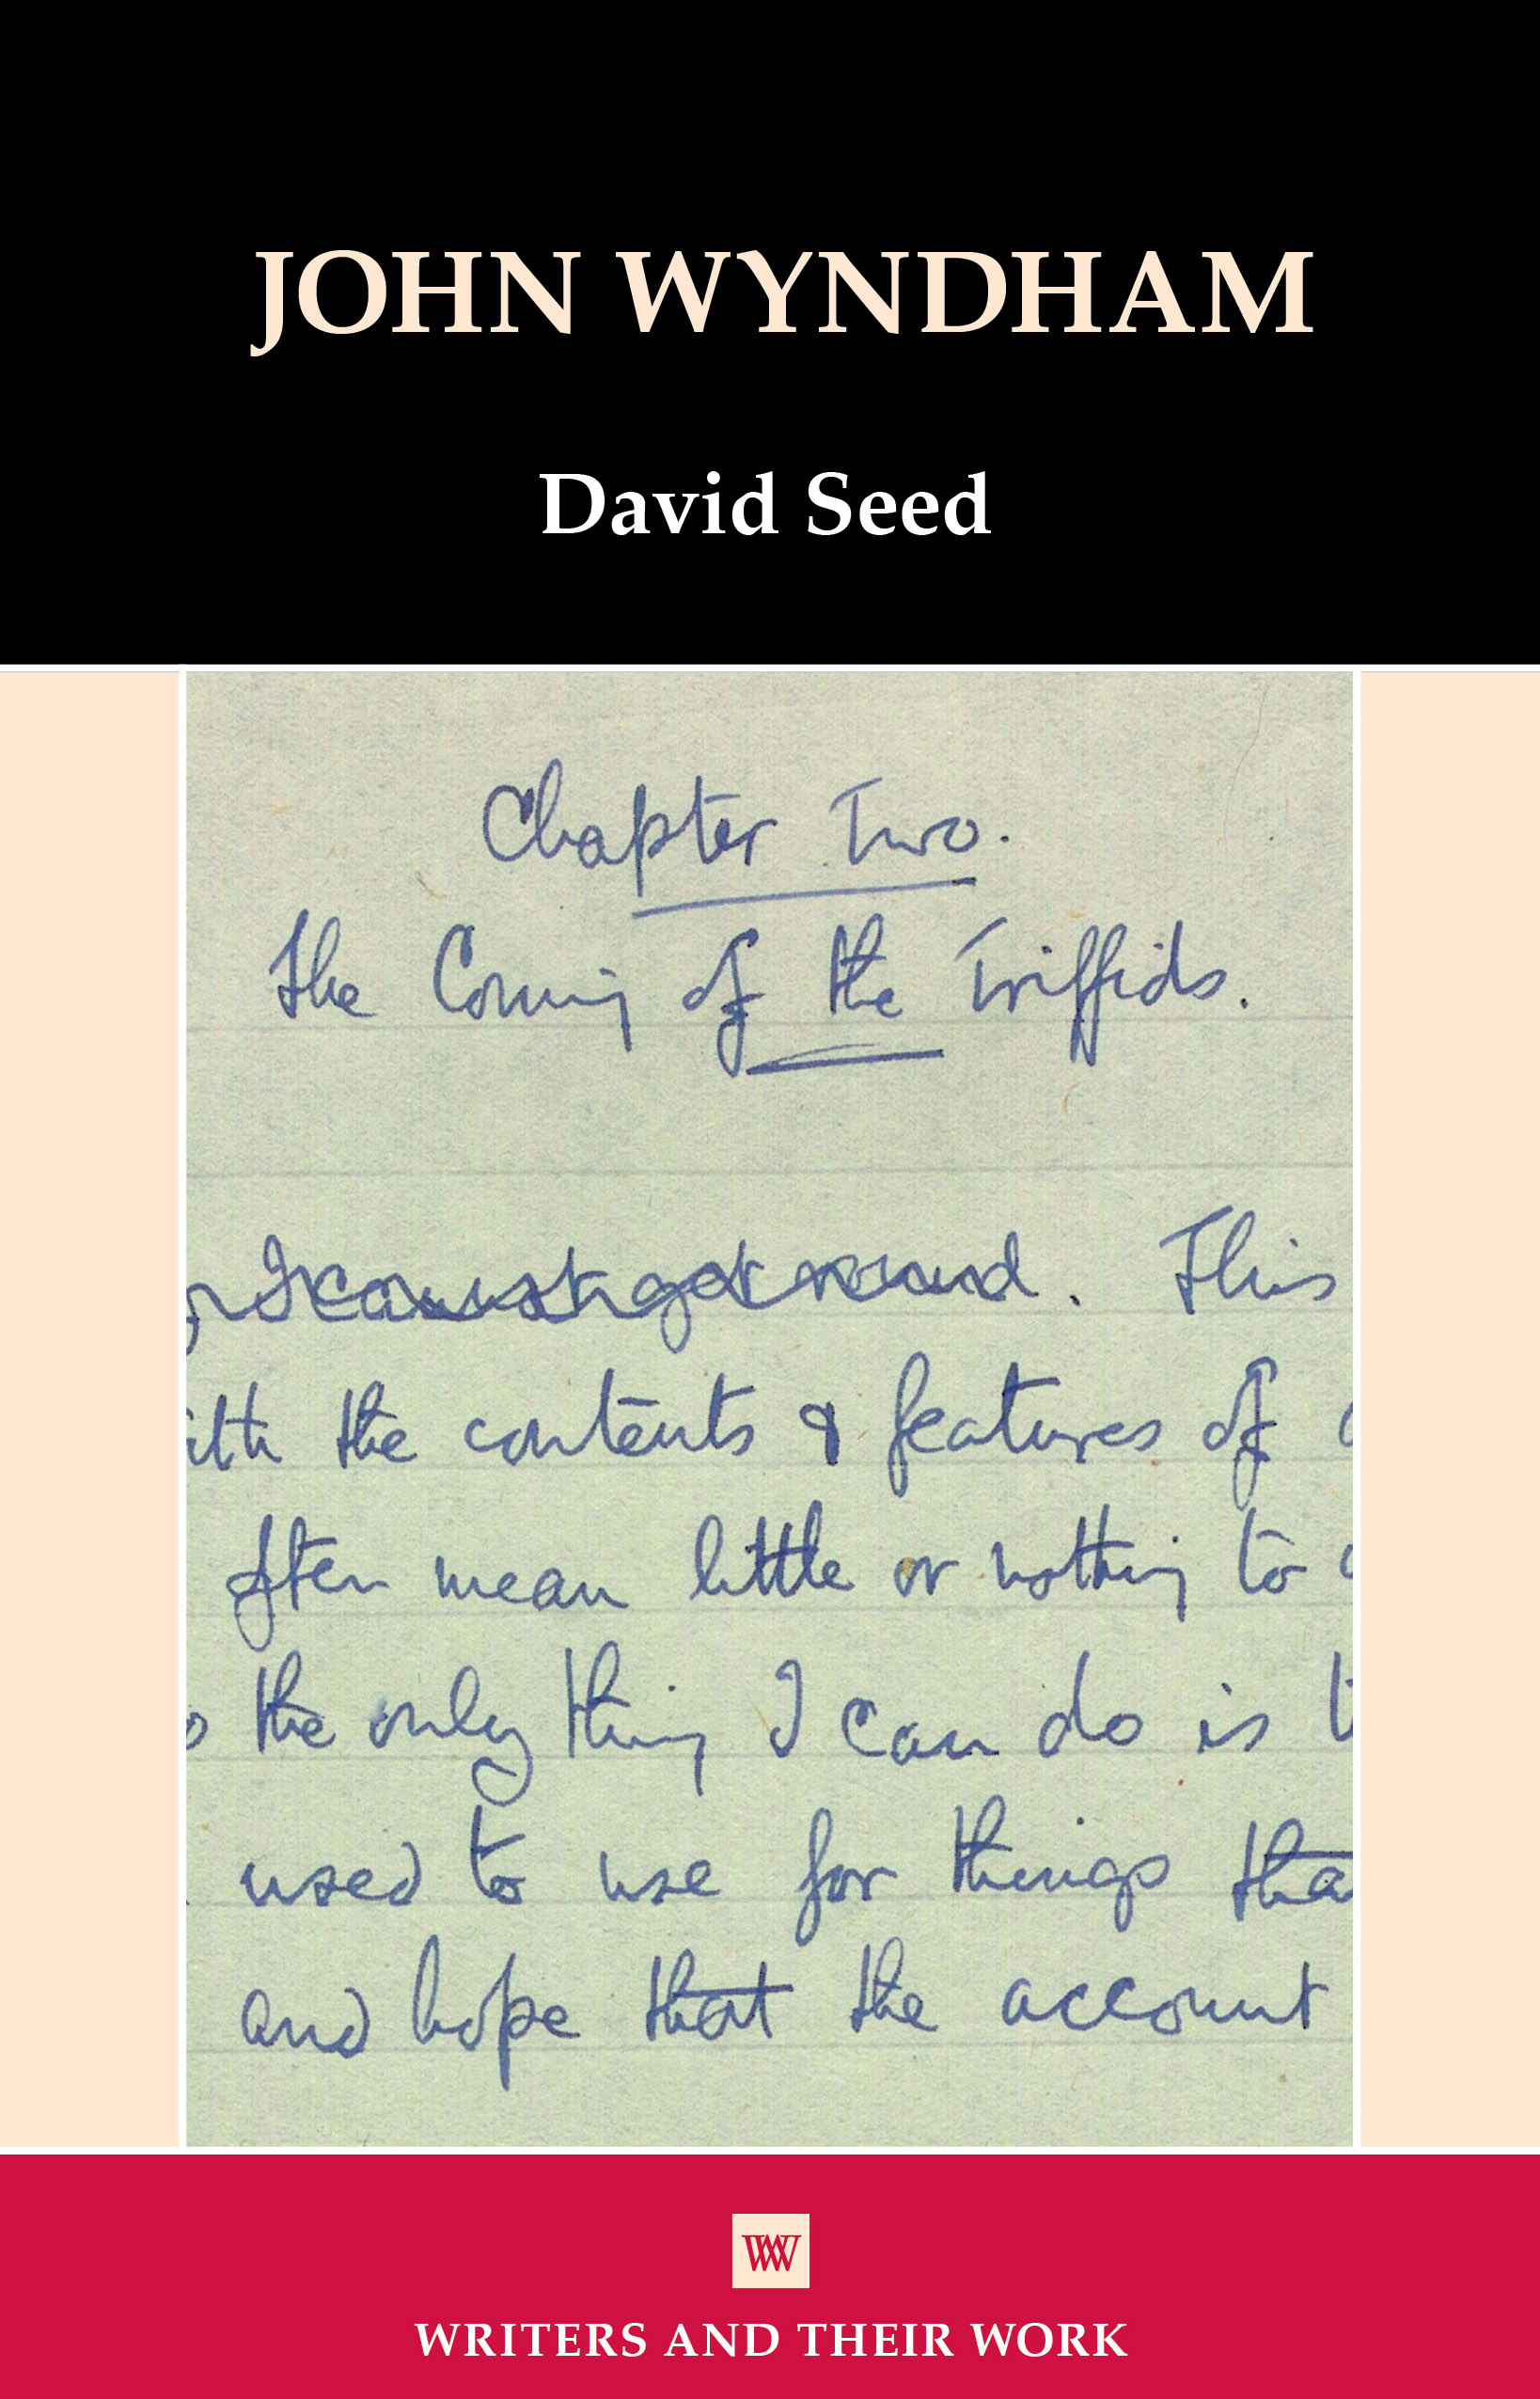 JOHN WYNDHAM
David Seed
Chapter Two.
The Coming of the Triffids.
I cannot get round. This
ith the contents & features of
often mean little or nothing to
the only thing I can do is t
used to use for things tha
and hope that the account
W
WRITERS AND THEIR WORK